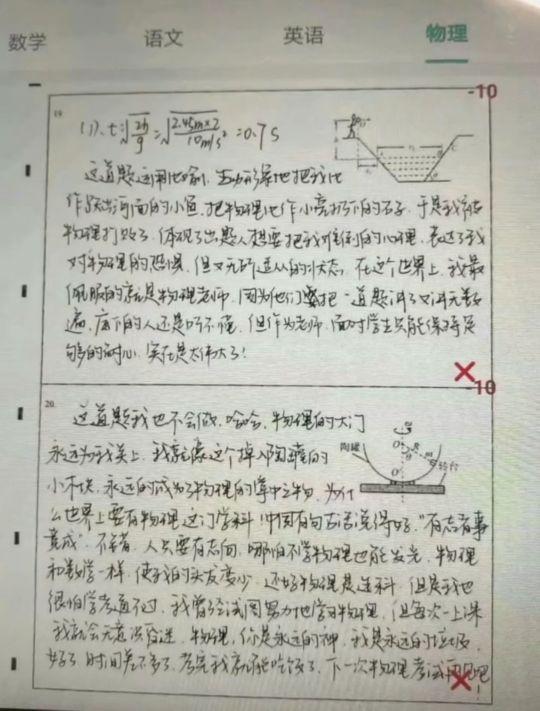 数学 语文 英语 物理
-10
19.
(1). t=√(2h/g)=√(2.45m×2/10m/s²)=0.7s
这道题运用比喻,生动形象地把我比
作跃出河面的小鱼,把物理比作小亮扔下的石子,于是我被
物理打败了,体现了出题人想要把我难倒的心理,表达了我
对物理的恐惧,但又无所适从的状态,在这个世界上,我最
佩服的就是物理老师,因为他们要把一道题讲了又讲无数
遍,底下的人还是听不懂,但作为老师,面对学生只能保持足
够的耐心,实在是太伟大了!
-10
20.
这道题我也不会做,哈哈,物理的大门
永远为我关上,我就像这个掉入陶罐的
小木块,永远的成为了物理的掌中之物,为什
么世界上要有物理这门学科,中国有句古话说得好,"有志者事
竟成",不错,人只要有志向,哪怕不学物理也能发光,物理
和数学一样,使我的头发变少,还好物理是选科,但是我也
很怕学考过不了,我曾经试图努力地学习物理,但每次一上课
我就会无意识昏迷,物理,你是永远的神,我是永远的垃圾,
好了,时间差不多了,考完我就能吃饭了,下一次物理考试再见吧!
陶罐
转台
O
R
θ
m
O'